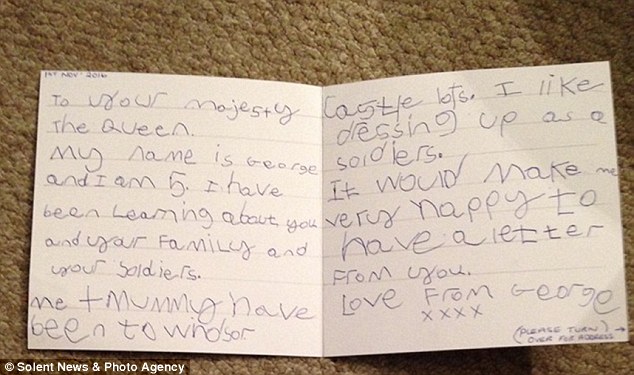 1st Nov. 2016
To your majesty
The Queen.
My name is George
and I am 5. I have
been Learning about you
and your Family and
your soldiers.
me + mummy have
been to windsor
Castle lots. I like
dressing up as a
soldiers.
It would make me
very happy to
have a letter
From you.
Love From George
xxxx
(PLEASE TURN) →
OVER FOR ADDRESS
© Solent News & Photo Agency